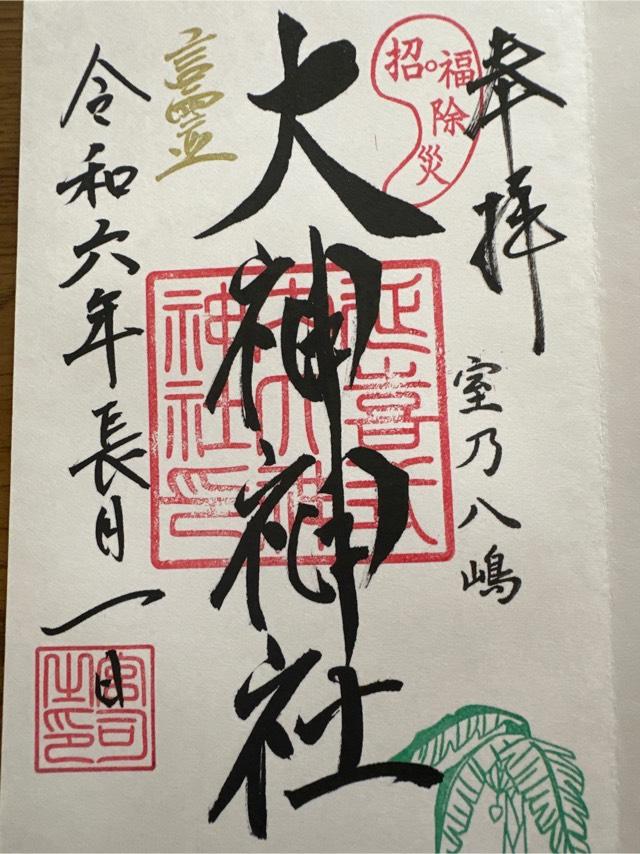 奉拝
室乃八嶋
招福除災
大神神社
延喜式
神社印
言霊
令和六年長月一日
宮司之印